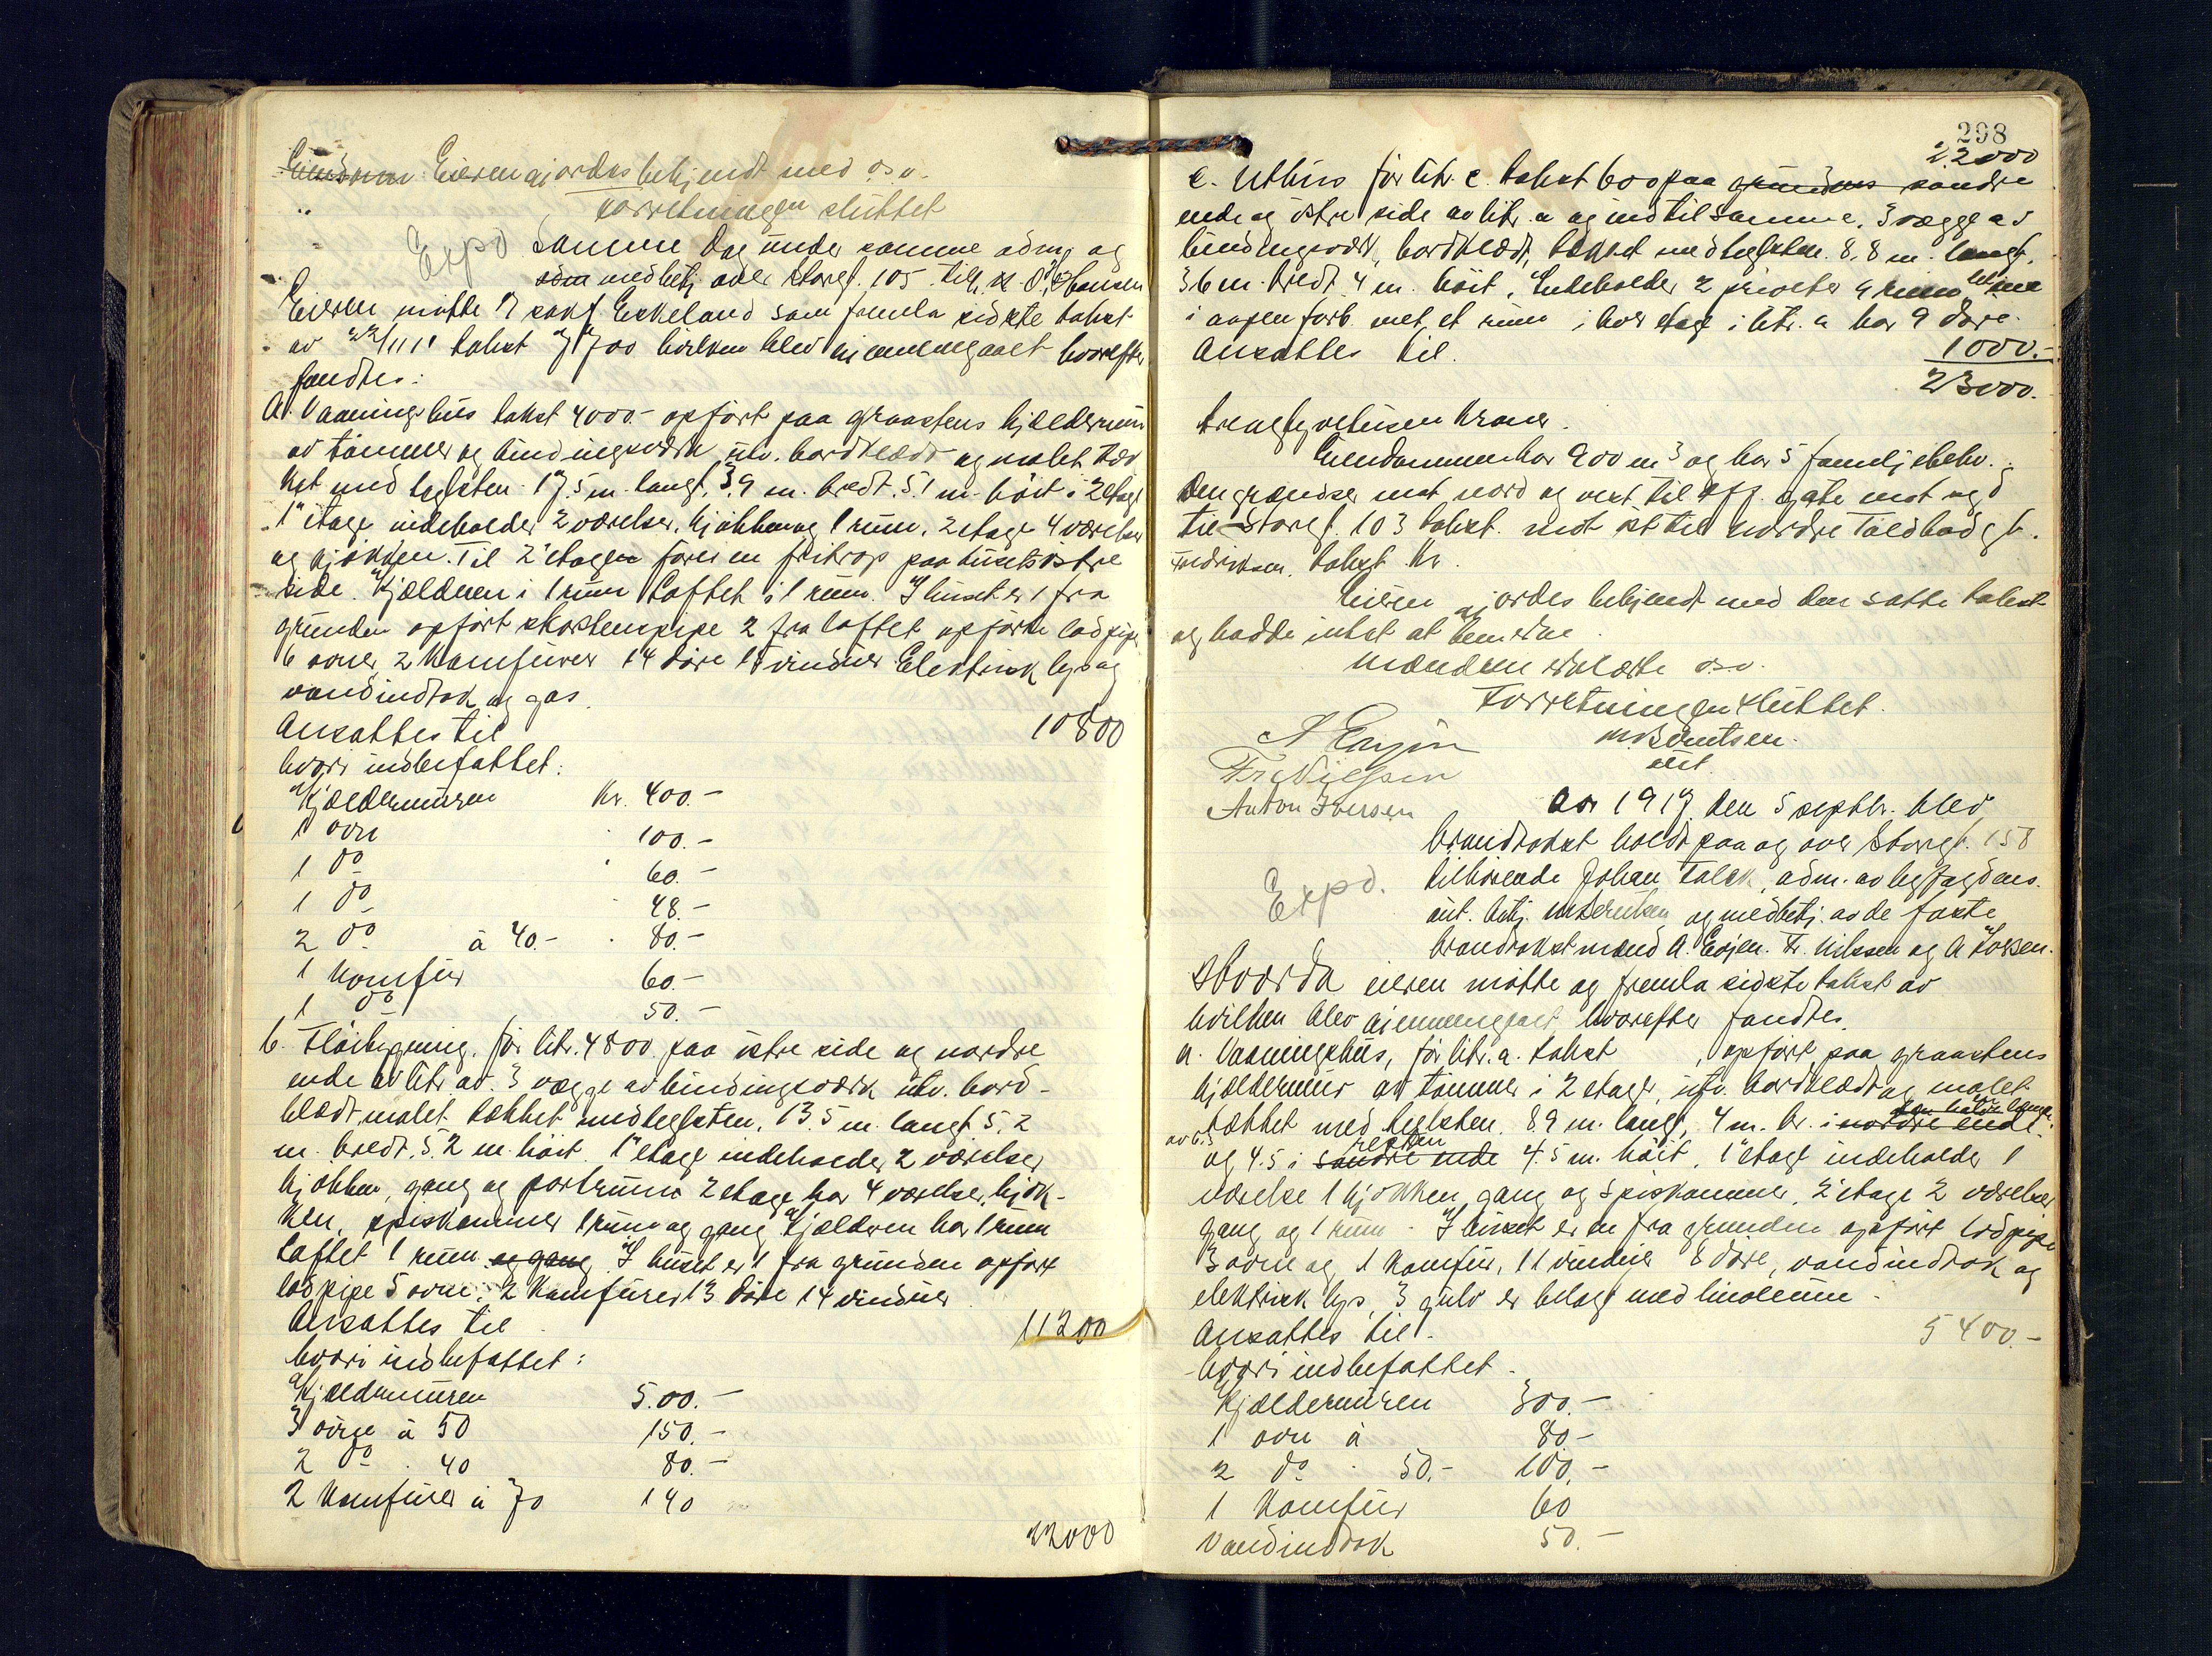 Eieren gjordes bekjendt med osv.
" Forretningen sluttet
Expd Samme dag under samme adm. og
som medbetj. over Storgt. 105 tilh.
Eieren møtte v/ sakf. Eskeland som fremla sidste takst
av 22/11 11 takst 7700 hvilken blev gjennemgaaet hvorefter
fandtes:
A. Vaaningshus takst 4000.- opført paa graastens kjældermur
av tømmer og bindingsverk utv. bordklædt og malet tæk
ket med teglsten. 17.5 m. langt, 3.9 m. bredt, 5.1 m. høit i 2 etage
1" etage indeholder 2 værelser, kjøkken og 1 rum, 2 etage 4 værelser
og kjøkken. Til 2' etagen fører en fritrap paa husets østre
side. Kjælderen i 1 rum Loftet i 1 rum. I huset er 1 fra
grunden opført skorstenspipe 2 fra loftet opførte lodpipe
6 ovner, 2 Komfurer 14 døre 15 vinduer Elektrisk lys og
vandindtak og gas.
Ansattes til 10800
hvori indbefattet:
Kjældermuren Kr. 400.-
1 ovn 100.-
1 do 60.-
1 do 48.-
2 do à 40.- 80.-
1 Komfur 60.-
1 do 50.-
b. Fløibygning. før litr. 4800 paa østre side og nordre
ende av litr a. 3 vægge av bindingsverk utv. bord-
klædt, malet tækket med teglsten, 13.5 m. langt 5.2
m. bredt. 5.2 m. høit. 1" etage indeholder 2 værelser
kjøkken, gang og portrum 2 etage har 4 værelser, kjøk-
ken, spiskammer 1 rum og gang Kjælderen har 1 rum
Loftet 1 rum og gang I huset er 1 fra grunden opført
lodpipe 5 ovne, 2 Komfurer 13 døre 14 vinduer
Ansattes til 11200
hvori indbefattet:
Kjældermuren 500.-
3 ovne à 50 150.-
2 do 40 80.-
2 Komfurer à 70 140
22000
298
22000
c. Uthus før litr. c. takst 600 paa grundens søndre
ende og østre side av litr. a og ind til samme. 3 vægge av
bindingsverk, bordklædt, tækket med teglsten. 8,8 m. langt,
3.6 m. bredt 4 m. høit. Indeholder 2 privater 4 rum
i aapen forb. met, et rum i hver etage i litr. a har 9 døre.
Ansattes til. 1000.-
23000.
treogtyvetusen Kroner.
Eiendommen har 900 m3 og har 5 familjebekv.
Den grændser mot nord og vest til off. gate mot syd
til Storgt. 103 takst mot øst til nordre Toldbodgt.
takst Kr.
Eieren gjordes bekjendt med den satte takst
og hadde intet at bemerke.
Mændene erklærte osv.
Forretningen sluttet.
A Enjen M Berntsen
Fr Nielsen aut.
Anton Iversen Aar 1917 den 5 septbr. blev
brandtakst holdt paa og over Storgt. 158
Expd. tilhørende Johan Falck, adm. av byfogdens
aut. betj. M. Berntsen og medbetj. av de faste
brandtakstmænd A. Enjen. Fr. Nilssen og A Iversen.
Hvorda eieren møtte og fremla sidste takst av
hvilken blev gjennemgaaet hvorefter fandtes.
a. Vaaningshus, før litr. a. takst , opført paa graastens
kjældermur av tømmer i 2 etager, utv. bordklædt og malet
tækket med teglsten. 8.9 m. langt, 4 m. br. i nordre ende den halve længde
og 4.5 i søndre ende resten 4.5 m. høit. 1" etage indeholder 1
værelse 1 kjøkken, gang og spiskammer. 2' etage 2 værelser
gang og 1 rum. I huset er en fra grunden opført lodpipe
3 ovne og 1 Komfur, 11 vinduer 8 døre, vandindtak og
elektrisk lys, 3 gulv er belagt med linoleum.
Ansattes til 5400.-
hvori indbefattet.
Kjældermuren 300.-
1 ovn à 80.-
2 do 50.- 100.-
1 Komfur 60
Vandindtak 50.-